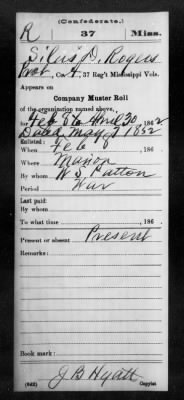 (Confederate.)
R 37 Miss.
Silas D. Rogers
Pvt, Co. A, 37 Reg't Mississippi Vols.
Appears on
Company Muster Roll
of the organization named above,
for Feb 8 to April 30, 1862
Dated May 7 1862
Enlisted:
When Feb 8, 186 .
Where Marion
By whom W S Patton
Period War
Last paid:
By whom
To what time , 186 .
Present or absent Present
Remarks:
Book mark:
(642) J B Hyatt Copyist.